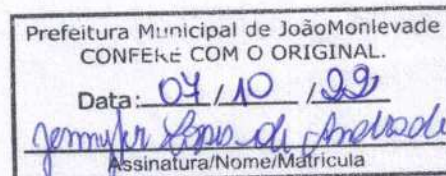 Prefeitura Municipal de João Monlevade
CONFERE COM O ORIGINAL.
Data: 07 / 10 / 22
Jennifer Lopes de Andrade
Assinatura/Nome/Matricula